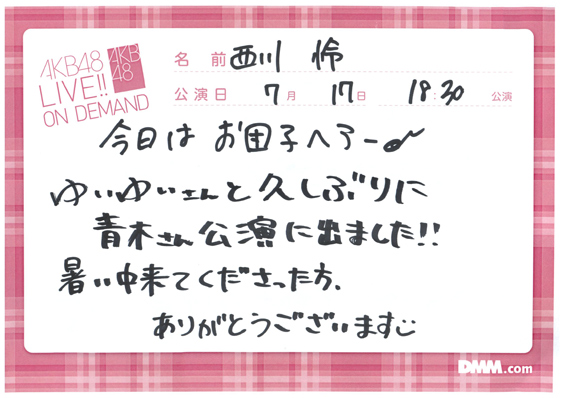 AKB48
LIVE!!
ON DEMAND
AKB
48
名前 西川 怜
公演日 7月 17日 18:30 公演
今日は お団子ヘアー♪
ゆいゆいさんと久しぶりに
青木さん公演に出ました!!
暑い中来てくださった方、
ありがとうございます
DMM.com